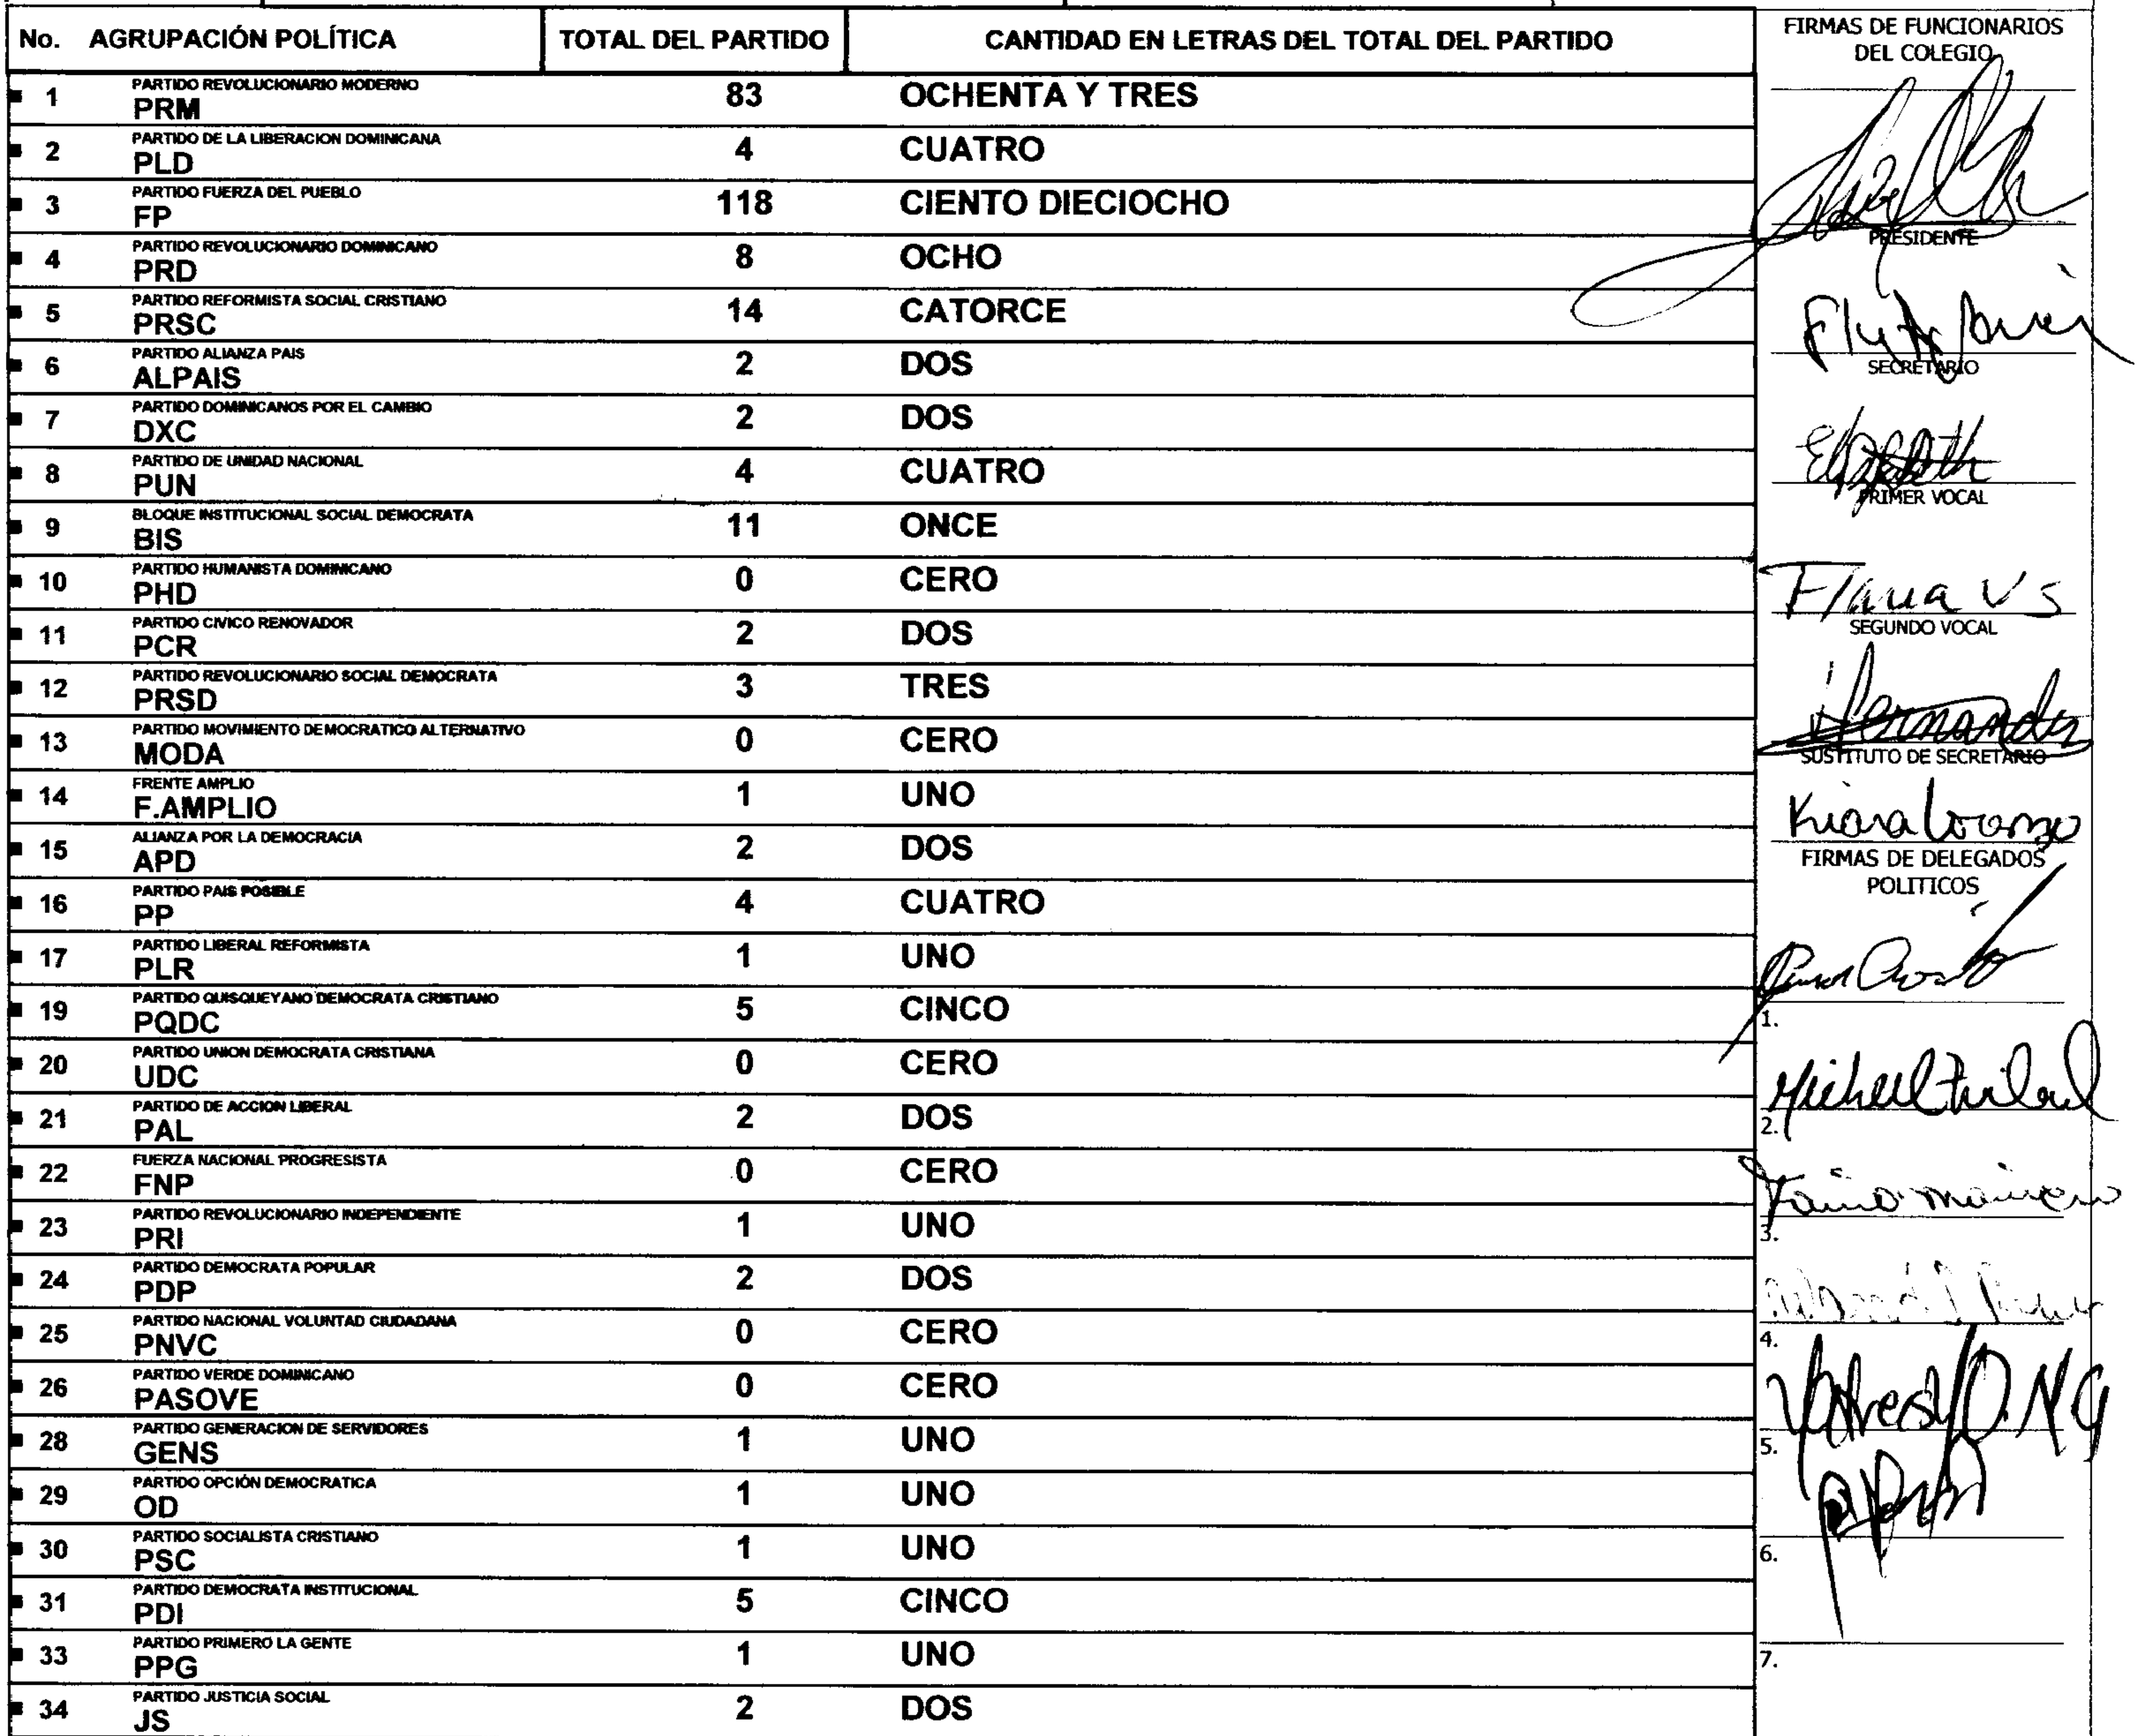 No. AGRUPACIÓN POLÍTICA TOTAL DEL PARTIDO CANTIDAD EN LETRAS DEL TOTAL DEL PARTIDO
PARTIDO REVOLUCIONARIO MODERNO
1 PRM 83 OCHENTA Y TRES
PARTIDO DE LA LIBERACION DOMINICANA
2 PLD 4 CUATRO
PARTIDO FUERZA DEL PUEBLO
3 FP 118 CIENTO DIECIOCHO
PARTIDO REVOLUCIONARIO DOMINICANO
4 PRD 8 OCHO
PARTIDO REFORMISTA SOCIAL CRISTIANO
5 PRSC 14 CATORCE
PARTIDO ALIANZA PAIS
6 ALPAIS 2 DOS
PARTIDO DOMINICANOS POR EL CAMBIO
7 DXC 2 DOS
PARTIDO DE UNIDAD NACIONAL
8 PUN 4 CUATRO
BLOQUE INSTITUCIONAL SOCIAL DEMOCRATA
9 BIS 11 ONCE
PARTIDO HUMANISTA DOMINICANO
10 PHD 0 CERO
PARTIDO CIVICO RENOVADOR
11 PCR 2 DOS
PARTIDO REVOLUCIONARIO SOCIAL DEMOCRATA
12 PRSD 3 TRES
PARTIDO MOVIMIENTO DEMOCRATICO ALTERNATIVO
13 MODA 0 CERO
FRENTE AMPLIO
14 F.AMPLIO 1 UNO
ALIANZA POR LA DEMOCRACIA
15 APD 2 DOS
PARTIDO PAIS POSIBLE
16 PP 4 CUATRO
PARTIDO LIBERAL REFORMISTA
17 PLR 1 UNO
PARTIDO QUISQUEYANO DEMOCRATA CRISTIANO
19 PQDC 5 CINCO
PARTIDO UNION DEMOCRATA CRISTIANA
20 UDC 0 CERO
PARTIDO DE ACCION LIBERAL
21 PAL 2 DOS
FUERZA NACIONAL PROGRESISTA
22 FNP 0 CERO
PARTIDO REVOLUCIONARIO INDEPENDIENTE
23 PRI 1 UNO
PARTIDO DEMOCRATA POPULAR
24 PDP 2 DOS
PARTIDO NACIONAL VOLUNTAD CIUDADANA
25 PNVC 0 CERO
PARTIDO VERDE DOMINICANO
26 PASOVE 0 CERO
PARTIDO GENERACION DE SERVIDORES
28 GENS 1 UNO
PARTIDO OPCIÓN DEMOCRATICA
29 OD 1 UNO
PARTIDO SOCIALISTA CRISTIANO
30 PSC 1 UNO
PARTIDO DEMOCRATA INSTITUCIONAL
31 PDI 5 CINCO
PARTIDO PRIMERO LA GENTE
33 PPG 1 UNO
PARTIDO JUSTICIA SOCIAL
34 JS 2 DOS
FIRMAS DE FUNCIONARIOS
DEL COLEGIO
PRESIDENTE
SECRETARIO
Elizabeth
PRIMER VOCAL
SEGUNDO VOCAL
SUSTITUTO DE SECRETARIO
Kiara
FIRMAS DE DELEGADOS
POLITICOS
1.
2.
3.
4.
5.
6.
7.